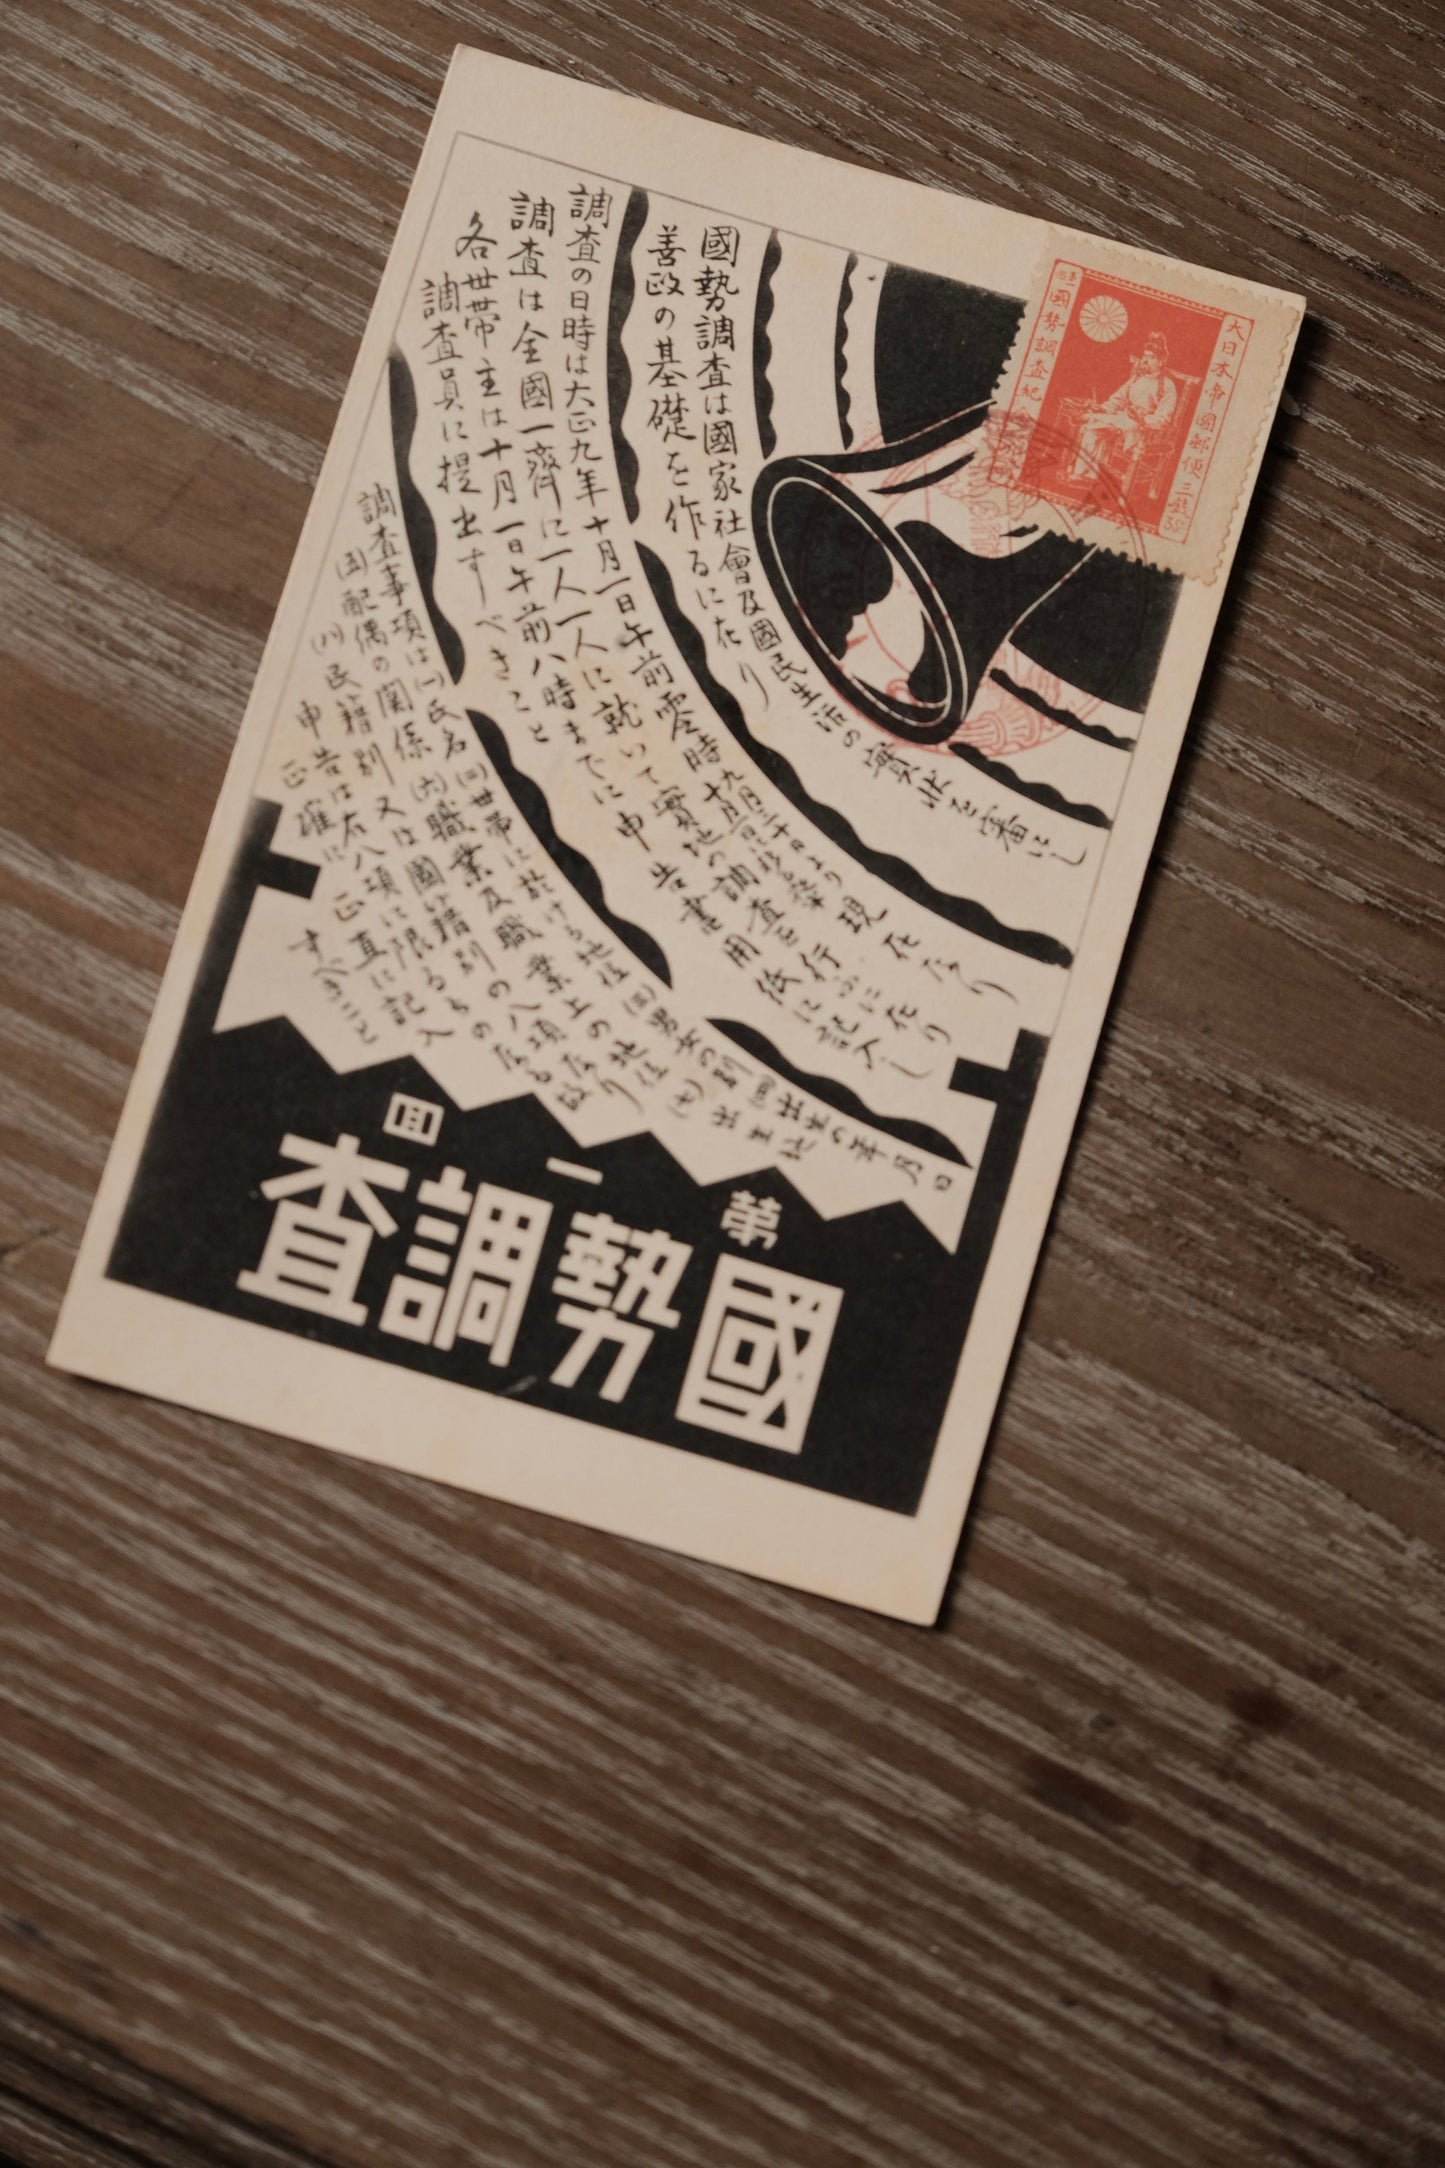 國勢調査は國家社會及國民生活の實狀を審にし
善政の基礎を作るに在り
調査の日時は大正九年十月一日午前零時九月三十日より十月一日に移る瞬間現在なり
調査は全國一齊に一人一人に就いて實地の調査を行ふに在り
各世帯主は十月一日午前八時までに申告書用紙に記入し
調査員に提出すべきこと
調査事項は(一)氏名(二)世帯に於ける地位(三)男女の別(四)出生の年月日
(五)配偶の関係(六)職業及職業上の地位(七)出生地
(八)民籍別又は國籍別の八項なり
申告は右八項に限るもの故
正確に正直に記入すべきこと
第一回
國勢調査
大日本帝國郵便三銭
3Sn
第壹回國勢調査紀念